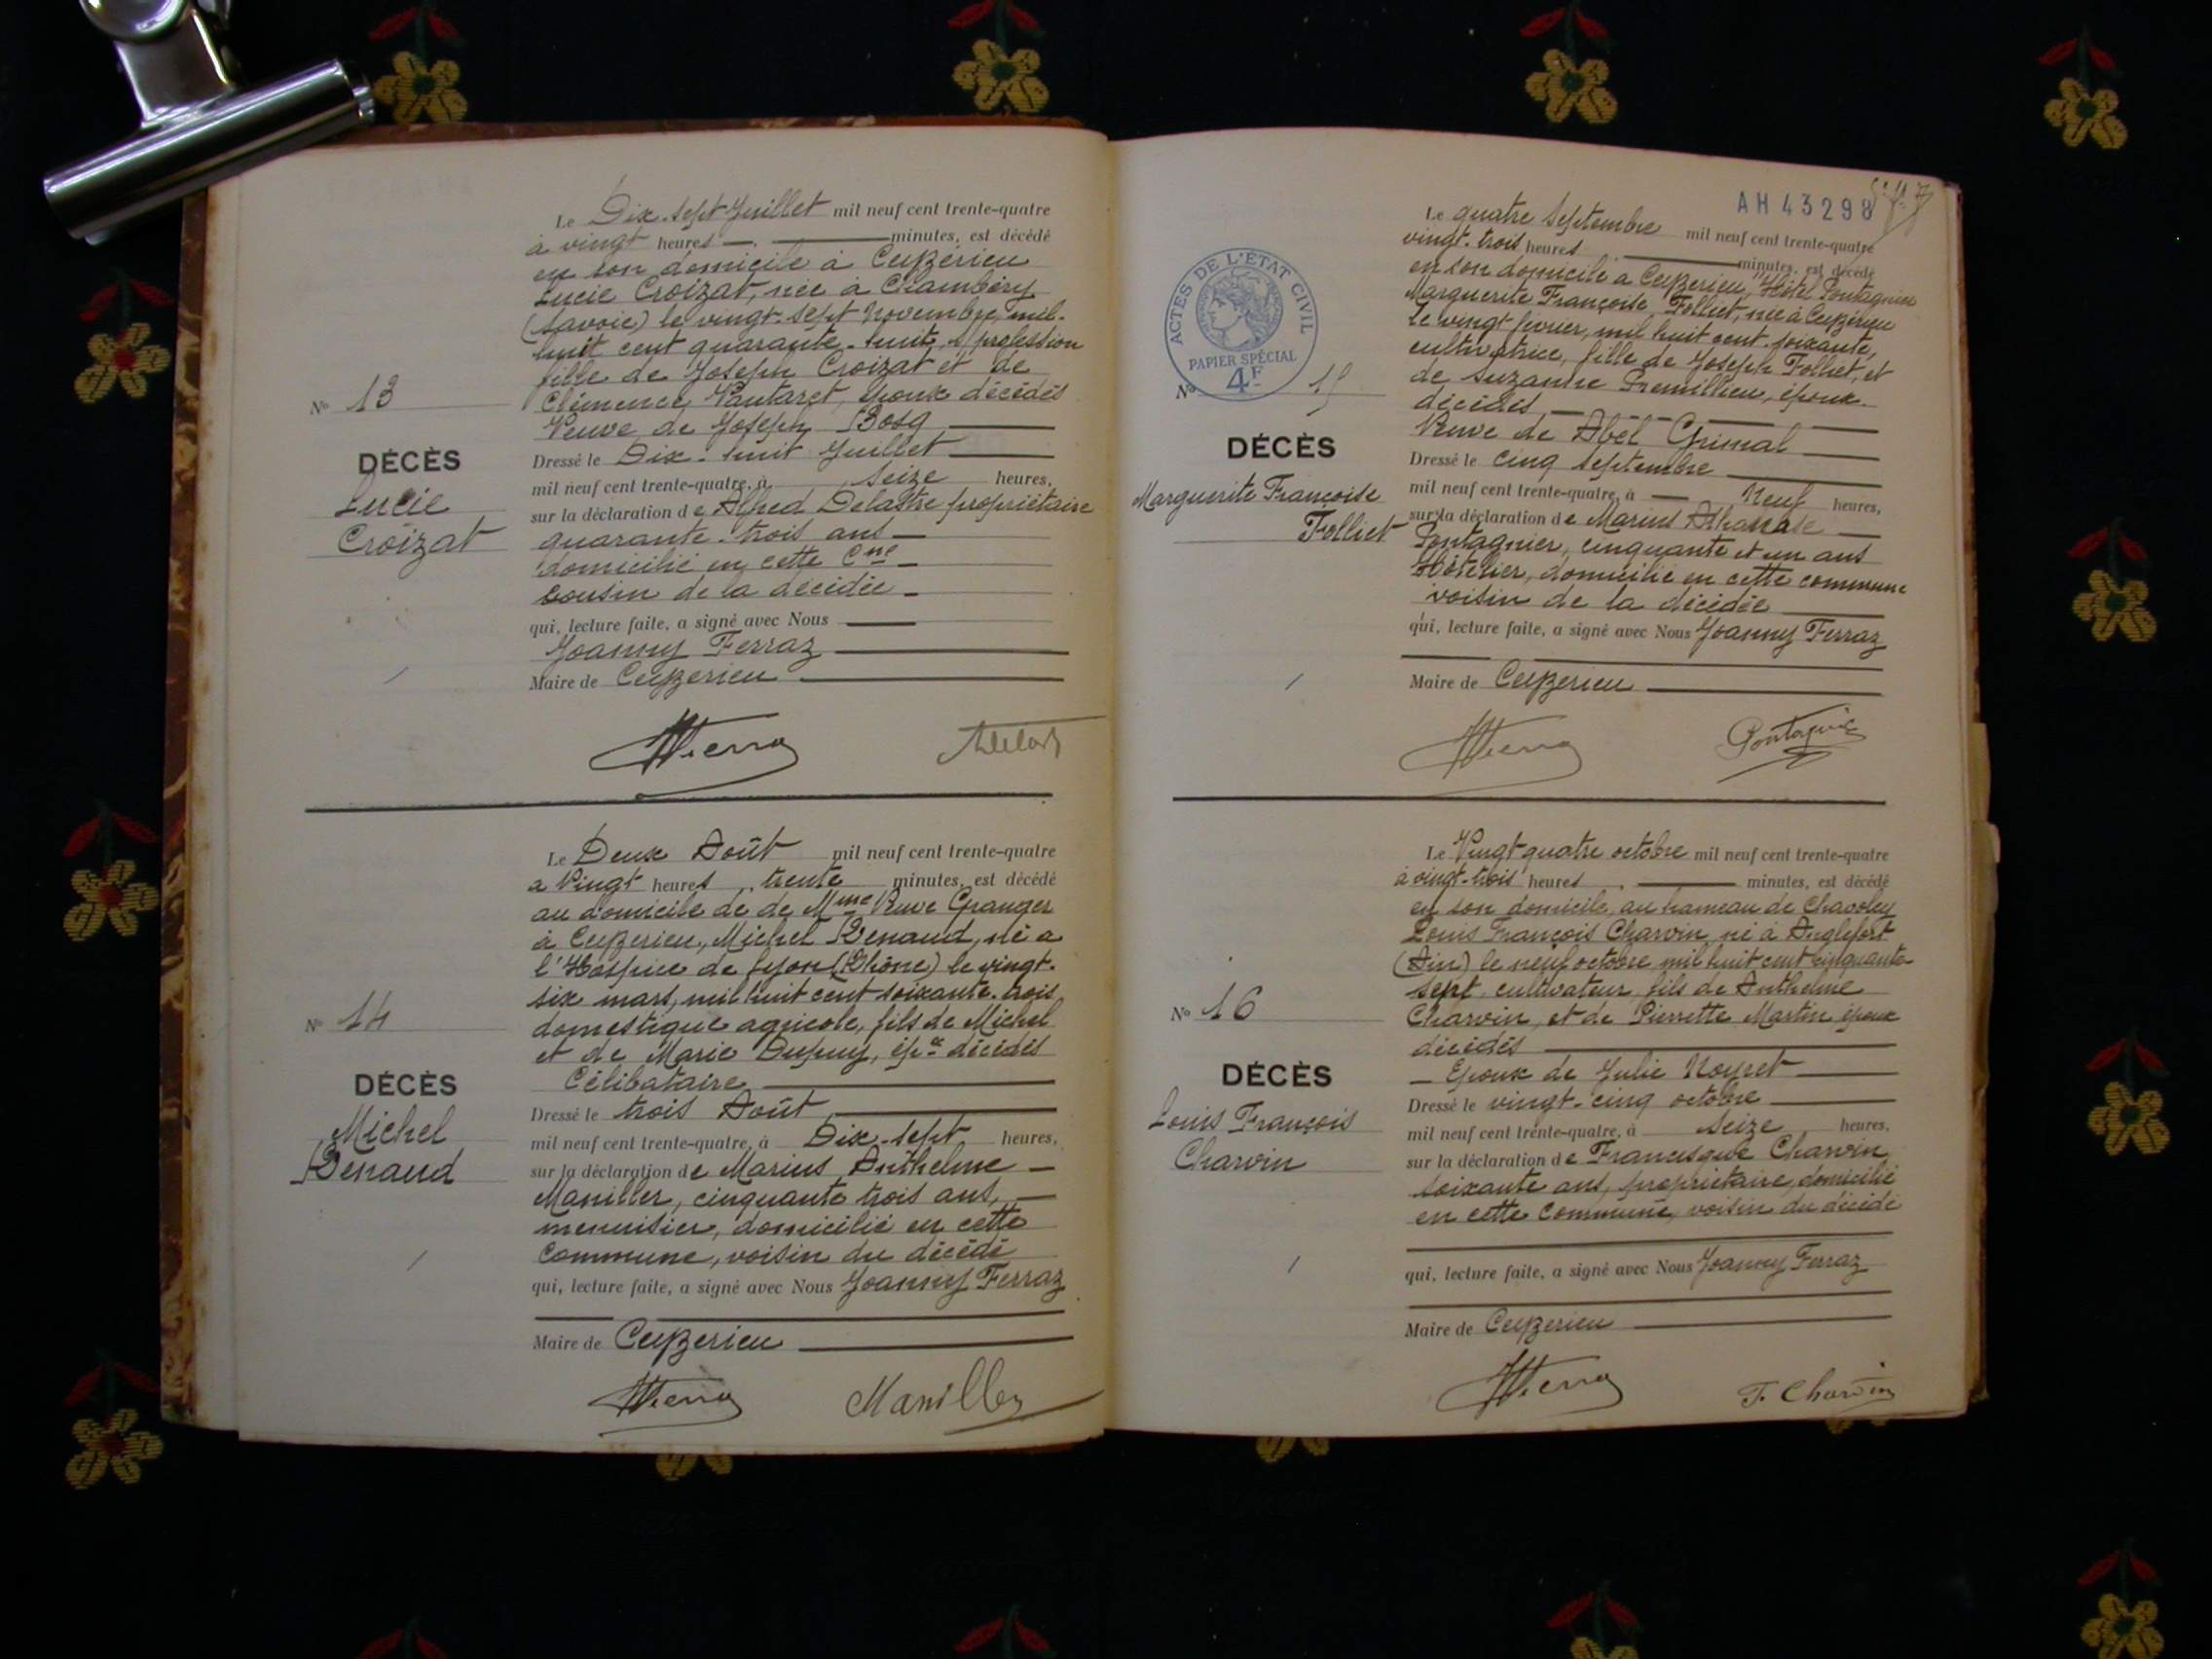 Le Dix-sept Juillet mil neuf cent trente-quatre
à vingt heures minutes, est décédé
en son domicile à Ceyzérieu
Lucie Croizat, née à Chambéry
(Savoie) le vingt-sept Novembre, mil-
huit cent quarante-huit, s/ profession
fille de Joseph Croizat et de
Clémence Vautaret, époux décédés
Veuve de Joseph Bosq
Dressé le Dix-huit Juillet
mil neuf cent trente-quatre, à seize heures,
sur la déclaration de Alfred Delastre propriétaire
quarante-trois ans
domicilié en cette Cne
cousin de la décédée
qui, lecture faite, a signé avec Nous
Joanny Ferraz
Maire de Ceyzerieu
No 13
DÉCÈS
Lucie
Croizat
Le Deux Août mil neuf cent trente-quatre
a Vingt heures, trente minutes, est décédé
au domicile de de Mme Veuve Granger
à Ceyzerieu, Michel Renaud, né a
l'Hospice de Lyon (Rhône) le vingt-
six mars, mil huit cent soixante-trois
domestique agricole, fils de Michel
et de Marie Dupuy, épx décédés
Célibataire
Dressé le trois Août
mil neuf cent trente-quatre, à Dix-sept heures,
sur la déclaration de Marius Anthelme
Maniller, cinquante trois ans,
menuisier, domicilié en cette
Commune, voisin du décédé
qui, lecture faite, a signé avec Nous Joanny Ferraz
Maire de Ceyzerieu
Maniller
No 14
DÉCÈS
Michel
Renaud
AH 43298
Le quatre Septembre mil neuf cent trente-quatre
vingt-trois heures minutes, est décédé
en son domicile a Ceyzerieu, "Hôtel Pontagnier
Marguerite Françoise Folliet, née à Ceyzérieu
le vingt février, mil huit cent soixante,
cultivatrice, fille de Joseph Folliet, et
de Suzanne Premillieu, époux
décédés
Veuve de Abel Grimal
Dressé le cinq septembre
mil neuf cent trente-quatre, à Neuf heures,
sur la déclaration de Marius Athanase
Pontagnier, cinquante et un ans
Hôtelier, domicilié en cette commune
voisin de la décédée
qui, lecture faite, a signé avec Nous Joanny Ferraz
Maire de Ceyzerieu
Pontagnier
ACTES DE L'ETAT CIVIL
PAPIER SPÉCIAL
4F
No 15
DÉCÈS
Marguerite Françoise
Folliet
Le Vingt quatre octobre mil neuf cent trente-quatre
à vingt-trois heures minutes, est décédé
en son domicile, au hameau de Chavoley
Louis François Charvin né à Anglefort
(Ain) le neuf octobre mil huit cent cinquante
sept, cultivateur, fils de Anthelme
Charvin, et de Pierrette Martin époux
décédés
Epoux de Julie Noyret
Dressé le vingt-cinq octobre
mil neuf cent trente-quatre, à seize heures,
sur la déclaration de Francisque Charvin
soixante ans, propriétaire, domicilié
en cette Commune, voisin du décédé
qui, lecture faite, a signé avec Nous Joanny Ferraz
Maire de Ceyzerieu
F. Charvin
No 16
DÉCÈS
Louis François
Charvin